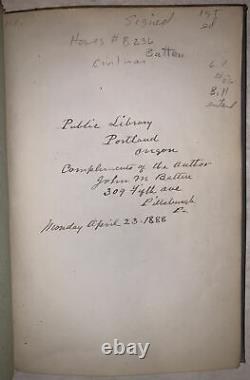 Signed
1st
ed
Howes # B236
Batten
Civil war
Public Library
Portland
Oregon
Compliments of the Author
John M Batten
309 Fifth ave
Pittsburgh
Pa
Monday April 23-1888